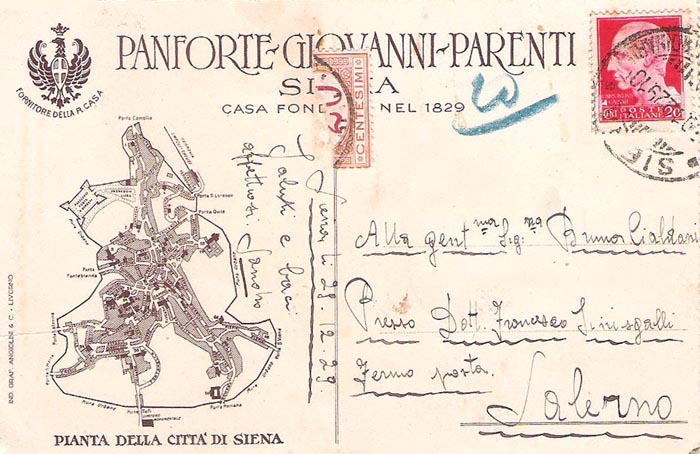 PANFORTE-GIOVANNI-PARENTI
SIENA
CASA FONDATA NEL 1829
FORNITORE DELLA R. CASA
CENTESIMI
20
POSTE
ITALIANE
20
SIE
Porta Camollia
Porta S. Lorenzo
Porta Ovile
Porta Fontebranda
Porta Romana
Porta Tufi
PIANTA DELLA CITTA' DI SIENA
IND. GRAF. ANGIOLINI & C. - LIVORNO
Siena li 28.12.29
Saluti e baci
affettuosi. Sandro
Alla gent.ma Sig.na Bruna Cialdani
Presso Dott. Francesco Sinisgalli
Fermo posta.
Salerno